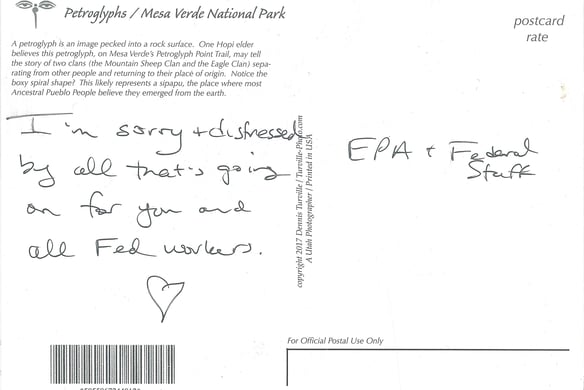 Petroglyphs / Mesa Verde National Park
postcard
rate
A petroglyph is an image pecked into a rock surface. One Hopi elder
believes this petroglyph, on Mesa Verde's Petroglyph Point Trail, may tell
the story of two clans (the Mountain Sheep Clan and the Eagle Clan) sepa-
rating from other people and returning to their place of origin. Notice the
boxy spiral shape? This likely represents a sipapu, the place where most
Ancestral Pueblo People believe they emerged from the earth.
I'm sorry + distressed
by all that's going
on for you and
all Fed workers.
♡
copyright 2017 Dennis Turville | Turville-Photo.com
A Utah Photographer | Printed in USA
EPA + Federal
Staff
For Official Postal Use Only